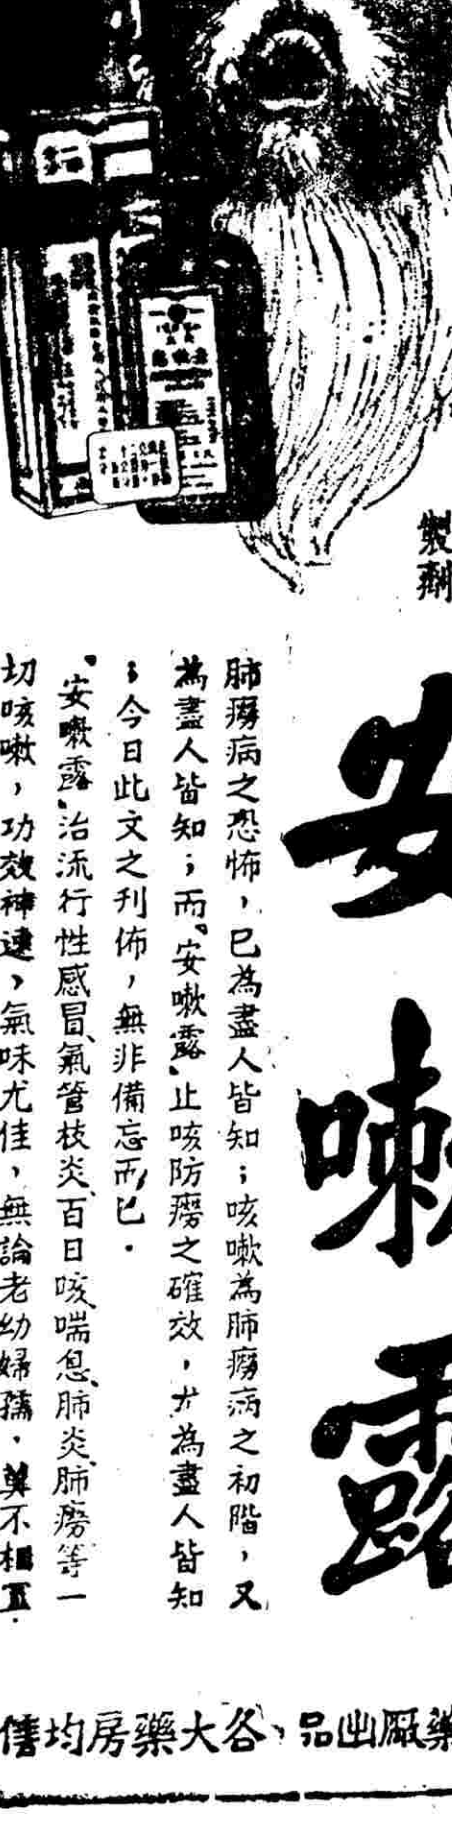 製劑
安嗽露
肺癆病之恐怖，已為盡人皆知；咳嗽為肺癆病之初階，又
為盡人皆知；而〝安嗽露〞止咳防癆之確效，尤為盡人皆知
；今日此文之刊佈，無非備忘而已．
〝安嗽露〞治流行性感冒、氣管枝炎、百日咳、喘息、肺炎、肺癆等一
切咳嗽，功效神速，氣味尤佳，無論老幼婦孺，莫不相宜．
藥廠出品、各大藥房均售